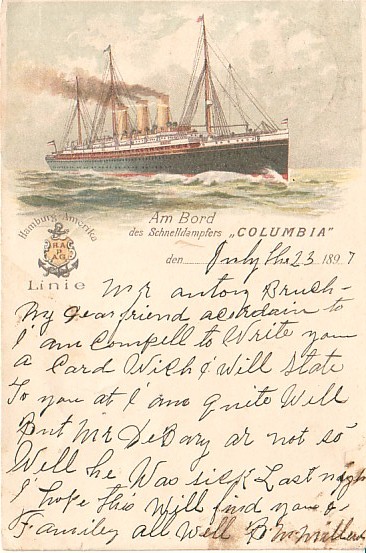 Am Bord
des Schnelldampfers „COLUMBIA"
Hamburg-Amerika
HAPAG
Linie
den July the 23 1897
Mr anton Bruch-
My Dear friend acordain to
I am Compell to Write you
a Card Wich I Will State
To you at I am quite Well
But Mr DeBary ar not so
Well he Was sick Last nigh
I hope this Will find you &
Familey all Well